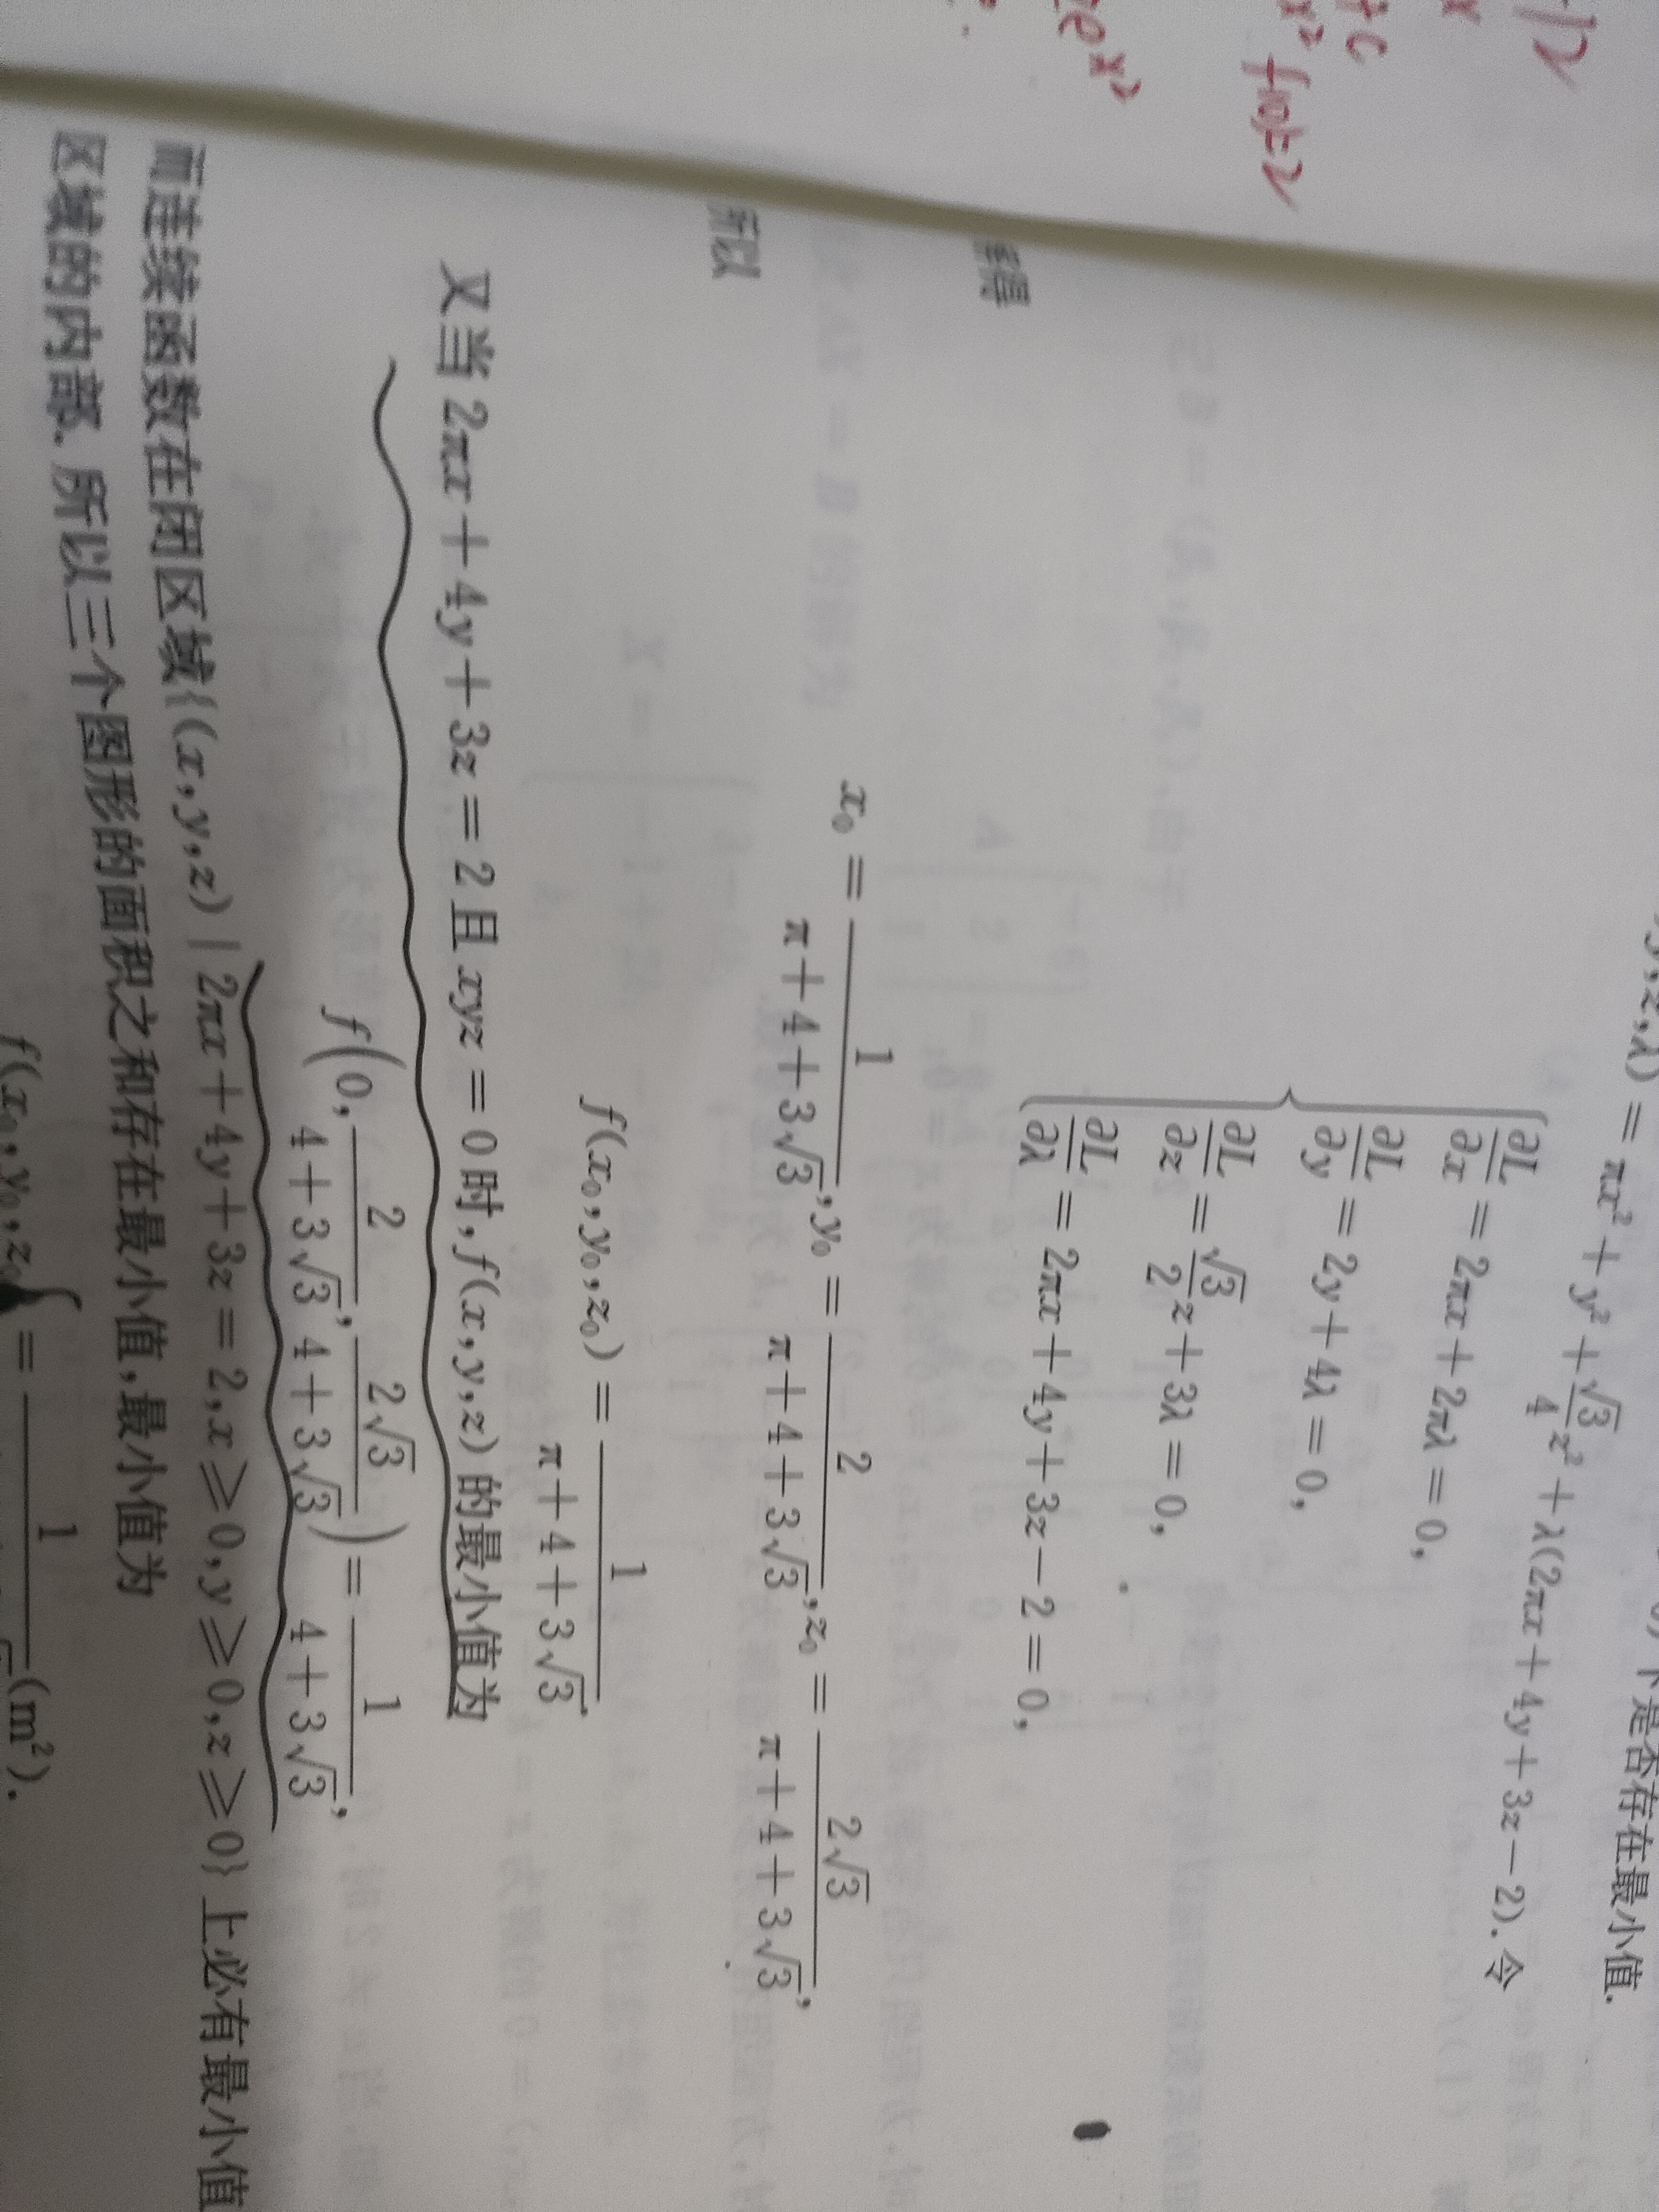 y,z,λ) = πx² + y² + √3/4 z² + λ(2πx + 4y + 3z − 2). 令
下是否存在最小值.
∂L/∂x = 2πx + 2πλ = 0,
∂L/∂y = 2y + 4λ = 0,
∂L/∂z = √3/2 z + 3λ = 0,
∂L/∂λ = 2πx + 4y + 3z − 2 = 0,
得
x₀ = 1/(π + 4 + 3√3), y₀ = 2/(π + 4 + 3√3), z₀ = 2√3/(π + 4 + 3√3),
所以
f(x₀, y₀, z₀) = 1/(π + 4 + 3√3).
又当 2πx + 4y + 3z = 2 且 xyz = 0 时, f(x, y, z) 的最小值为
f(0, 2/(4 + 3√3), 2√3/(4 + 3√3)) = 1/(4 + 3√3),
而连续函数在闭区域{(x, y, z) | 2πx + 4y + 3z = 2, x ⩾ 0, y ⩾ 0, z ⩾ 0} 上必有最小值
区域的内部. 所以三个图形的面积之和存在最小值, 最小值为
f(x₀, y₀, z₀) = 1 (m²).